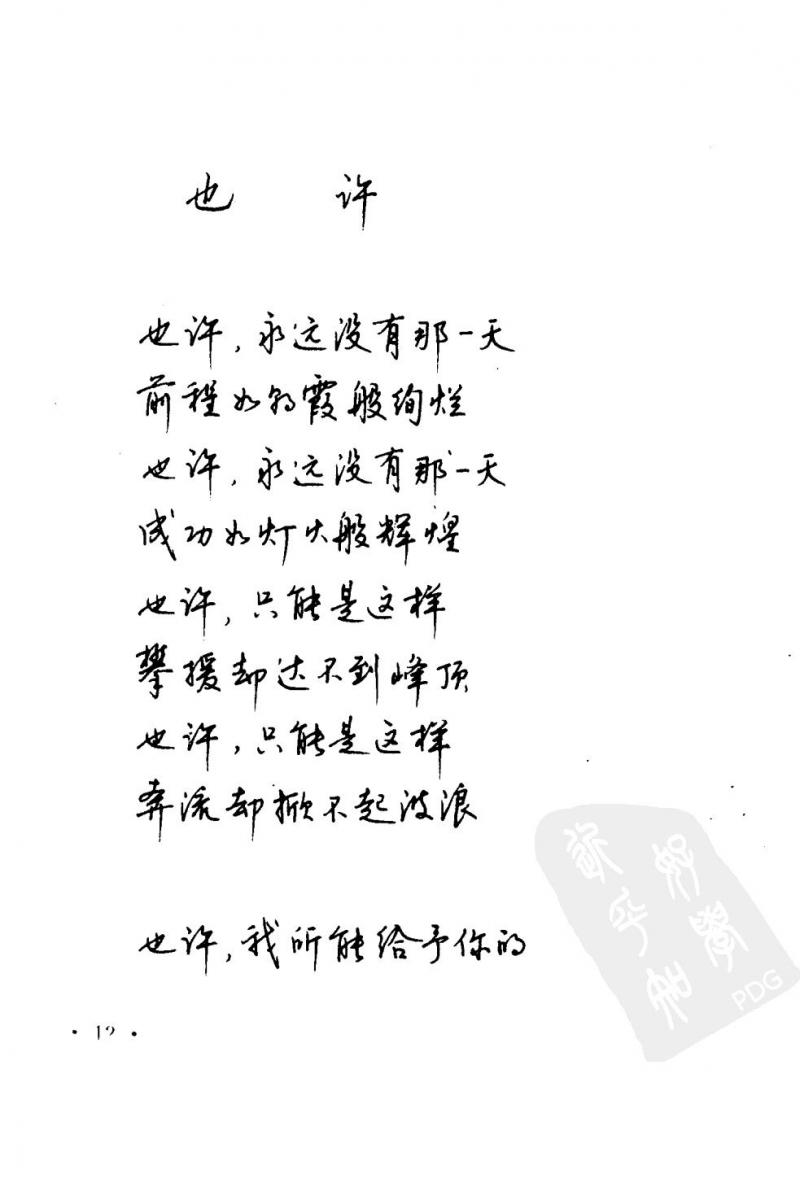 也 许
也许，永远没有那一天
前程如朝霞般绚烂
也许，永远没有那一天
成功如灯火般辉煌
也许，只能是这样
攀援却达不到峰顶
也许，只能是这样
奔流却掀不起波浪
也许，我所能给予你的
· 12 ·
PDG